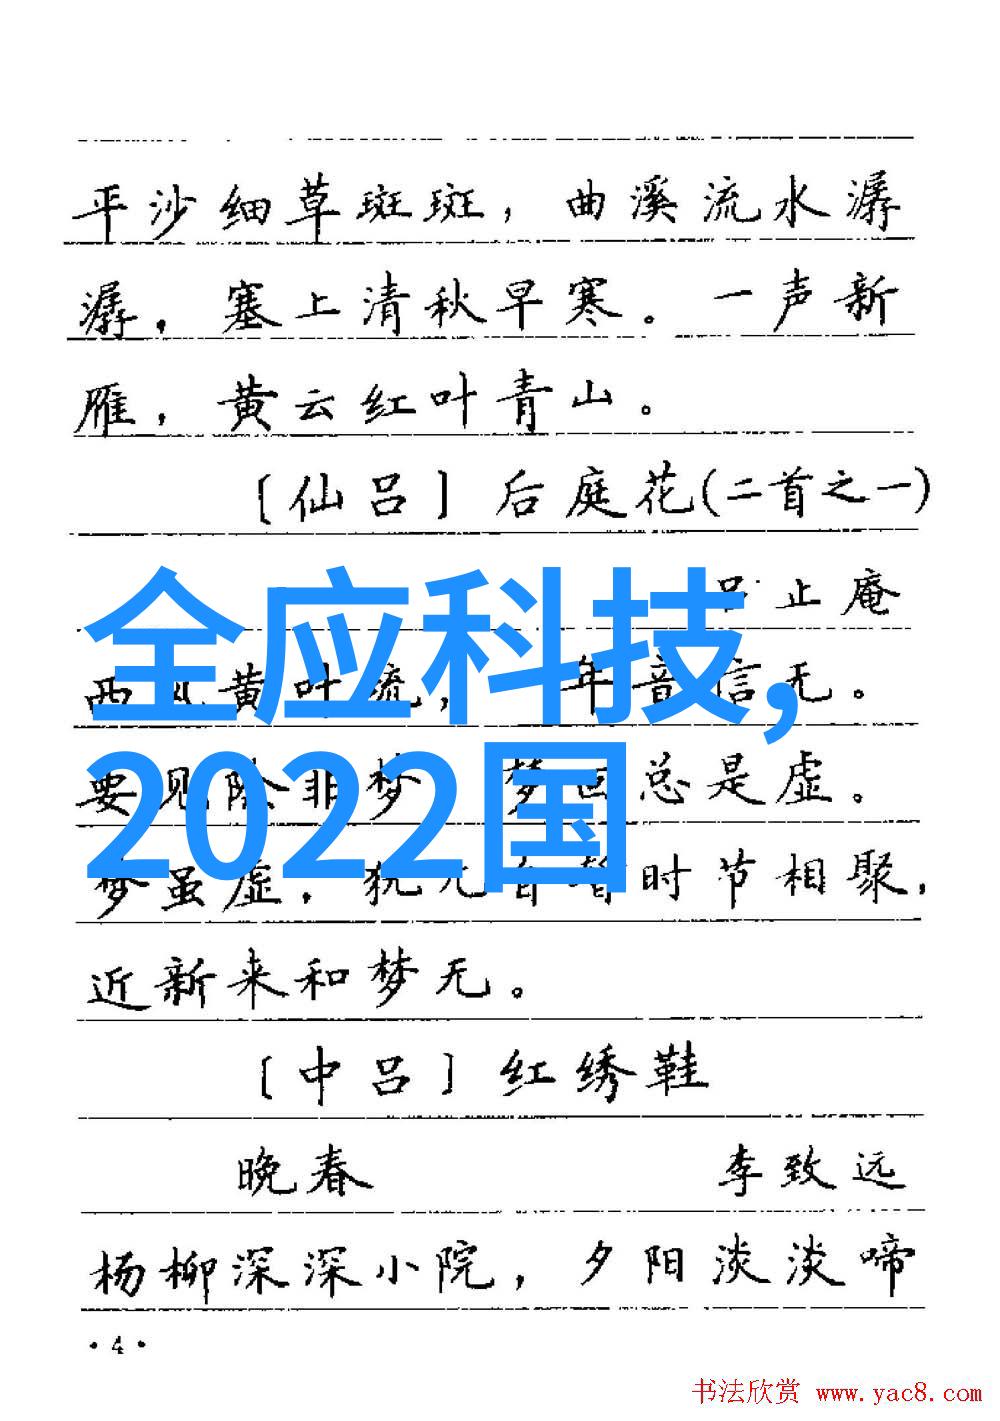 平沙细草斑斑，曲溪流水潺
潺，塞上清秋早寒。一声新
雁，黄云红叶青山。
〔仙吕〕后庭花(二首之一)
吕止庵
西风黄叶疏，年音信无。
要见除非梦，梦回总是虚。
梦虽虚，犹兀自暂时节相聚，
近新来和梦无。
〔中吕〕红绣鞋
晚春 李致远
杨柳深深小院，夕阳淡淡啼
·4·
全应科技,
2022国
书法欣赏 www.yac8.com